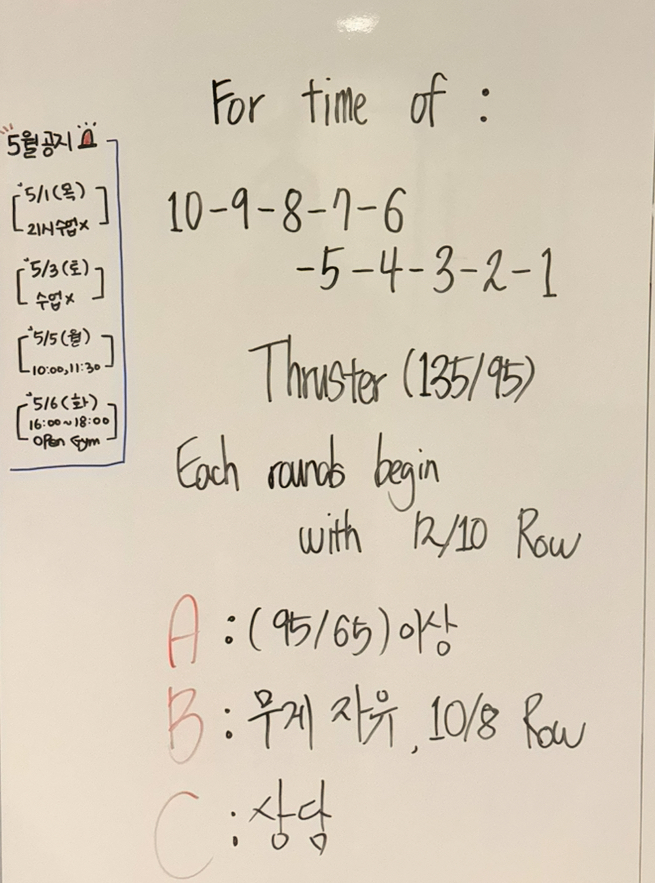 For time of :
10-9-8-7-6
-5-4-3-2-1
Thruster (135/95)
Each rounds begin
with 12/10 Row
A : (95/65) 이상
B : 무게 자유, 10/8 Row
C : 상담
5월 공지
*5/1 (목)
21시 수업x
*5/3 (토)
수업x
*5/5 (월)
10:00, 11:30
*5/6 (화)
16:00~18:00
open Gym